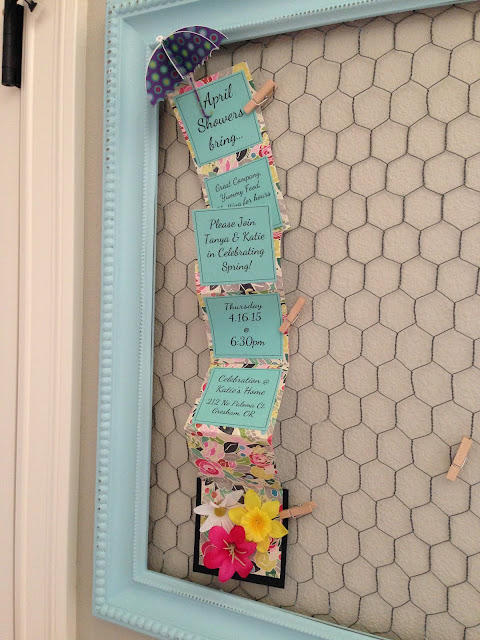 April
Showers
bring...
Great Company
Yummy Food
for hours
Please Join
Tanya & Katie
in Celebrating
Spring!
Thursday
4.16.15
@
6:30pm
Celebration @
Katie's Home
212 Ne Paloma Ct.
Gresham, OR